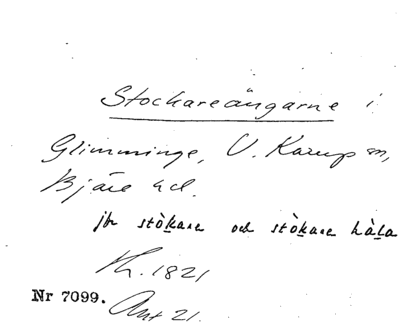 Stockareängarne i
Glimminge, V. Karup sn,
Bjäre hd.
jfr stòkare och stòkare hàla
Th. 1821
Nr 7099. Ant 21.